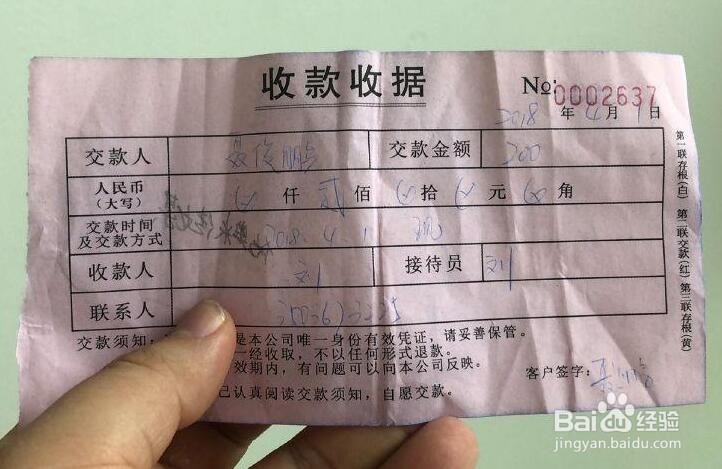 收款收据
No: 0002637
2018 年 4 月 1 日
交款人 交款金额 200
人民币（大写） 仟 贰 佰 拾 元 角
交款时间及交款方式 2018.4.1 现
收款人 刘 接待员 刘
联系人
交款须知： 是本公司唯一身份有效凭证，请妥善保管。
一经收取，不以任何形式退款。
效期内，有问题可以向本公司反映。
客户签字：
已认真阅读交款须知，自愿交款。
第一联存根(白) 第二联交款(红) 第三联存根(黄)
Bai 经验
jingyan.baidu.com